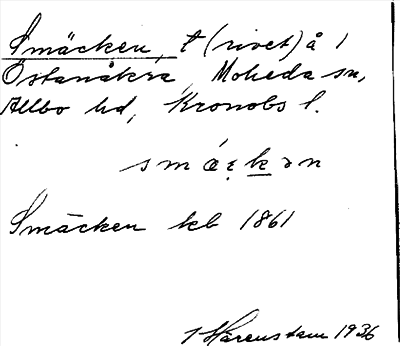 Smäcken, t (rivet) å /
Östanåkra, Moheda sn,
Allbo hd, Kronobs l.
smækən
Smäcken kb 1861
Härenstam 1936